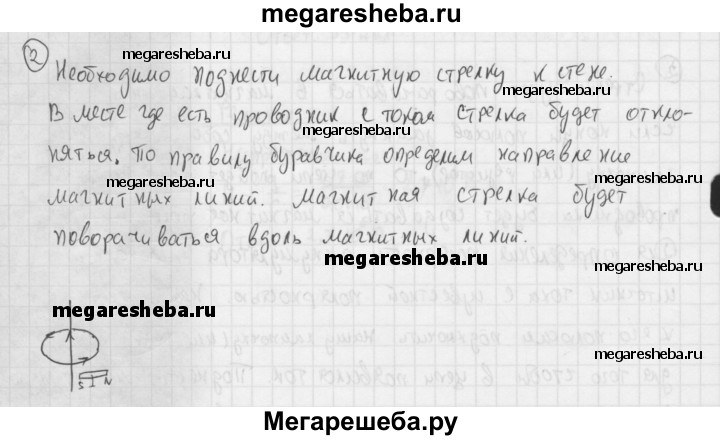 megaresheba.ru
2
megaresheba.ru
Необходимо поднести магнитную стрелку к стене.
megaresheba.ru
В месте где есть проводник с током стрелка будет откло-
megaresheba.ru
няться. По правилу буравчика определим направление
megaresheba.ru
магнитных линий. Магнитная стрелка будет
megaresheba.ru
поворачиваться вдоль магнитных линий.
megaresheba.ru
megaresheba.ru
megaresheba.ru
megaresheba.ru
S N
Мегарешеба.ру